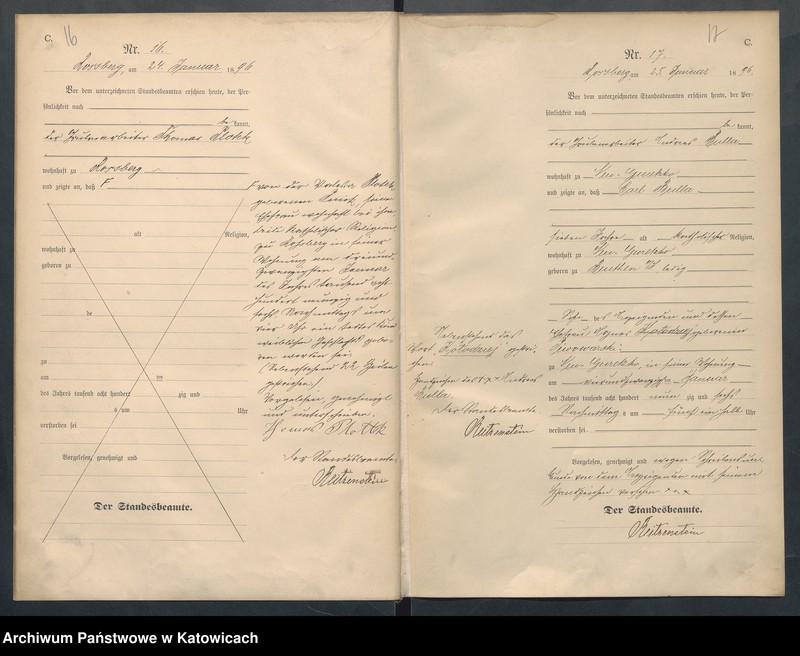 C. 16
Nr. 16.
Rossberg, am 24. Januar 1896
Vor dem unterzeichneten Standesbeamten erschien heute, der Per-
sönlichkeit nach
be kannt,
der Thomas
wohnhaft zu Rossberg
und zeigte an, daß F
alt Religion,
wohnhaft zu
geboren zu
de
zu
am ten
des Jahres tausend acht hundert zig und
um Uhr
verstorben sei
Vorgelesen, genehmigt und
Der Standesbeamte.
F von der
geborenen seine
Ehefrau wohnhaft bei ihm
katholischer Religion
zu Rossberg in seiner
Wohnung am dreiund
zwanzigsten Januar
des Jahres tausend acht
hundert neunzig und
sechs Nachmittags um
vier Uhr ein todtes Kind
weiblichen Geschlechts gebo-
ren worden sei.
(Vorstehend 22 Zeilen
gestrichen)
Vorgelesen, genehmigt
und unterschrieben.
Thomas
Der Standesbeamte
Reitzenstein
17 C.
Nr. 17.
Rossberg am 25. Januar 1896.
Vor dem unterzeichneten Standesbeamten erschien heute, der Per-
sönlichkeit nach
be kannt,
der Andreas Bulla
wohnhaft zu
und zeigte an, daß Karl Bulla
sieben Jahre alt katholischer Religion,
wohnhaft zu
geboren zu Beuthen ledig
Sohn des Anzeigenden und dessen
Ehefrau geborenen
zu in seiner Wohnung
am Januar
des Jahres tausend acht hundert neun zig und sechs
Nachmittag s um fünf ein halb Uhr
verstorben sei
Vorgelesen, genehmigt und wegen Schreibensun-
kunde von dem Anzeigenden mit seinem
Handzeichen versehen x x x
Der Standesbeamte.
Reitzenstein
Vorstehend das
Wort gestri-
chen
Handzeichen des x x x Andreas
Bulla.
Der Standesbeamte
Reitzenstein
Archiwum Państwowe w Katowicach